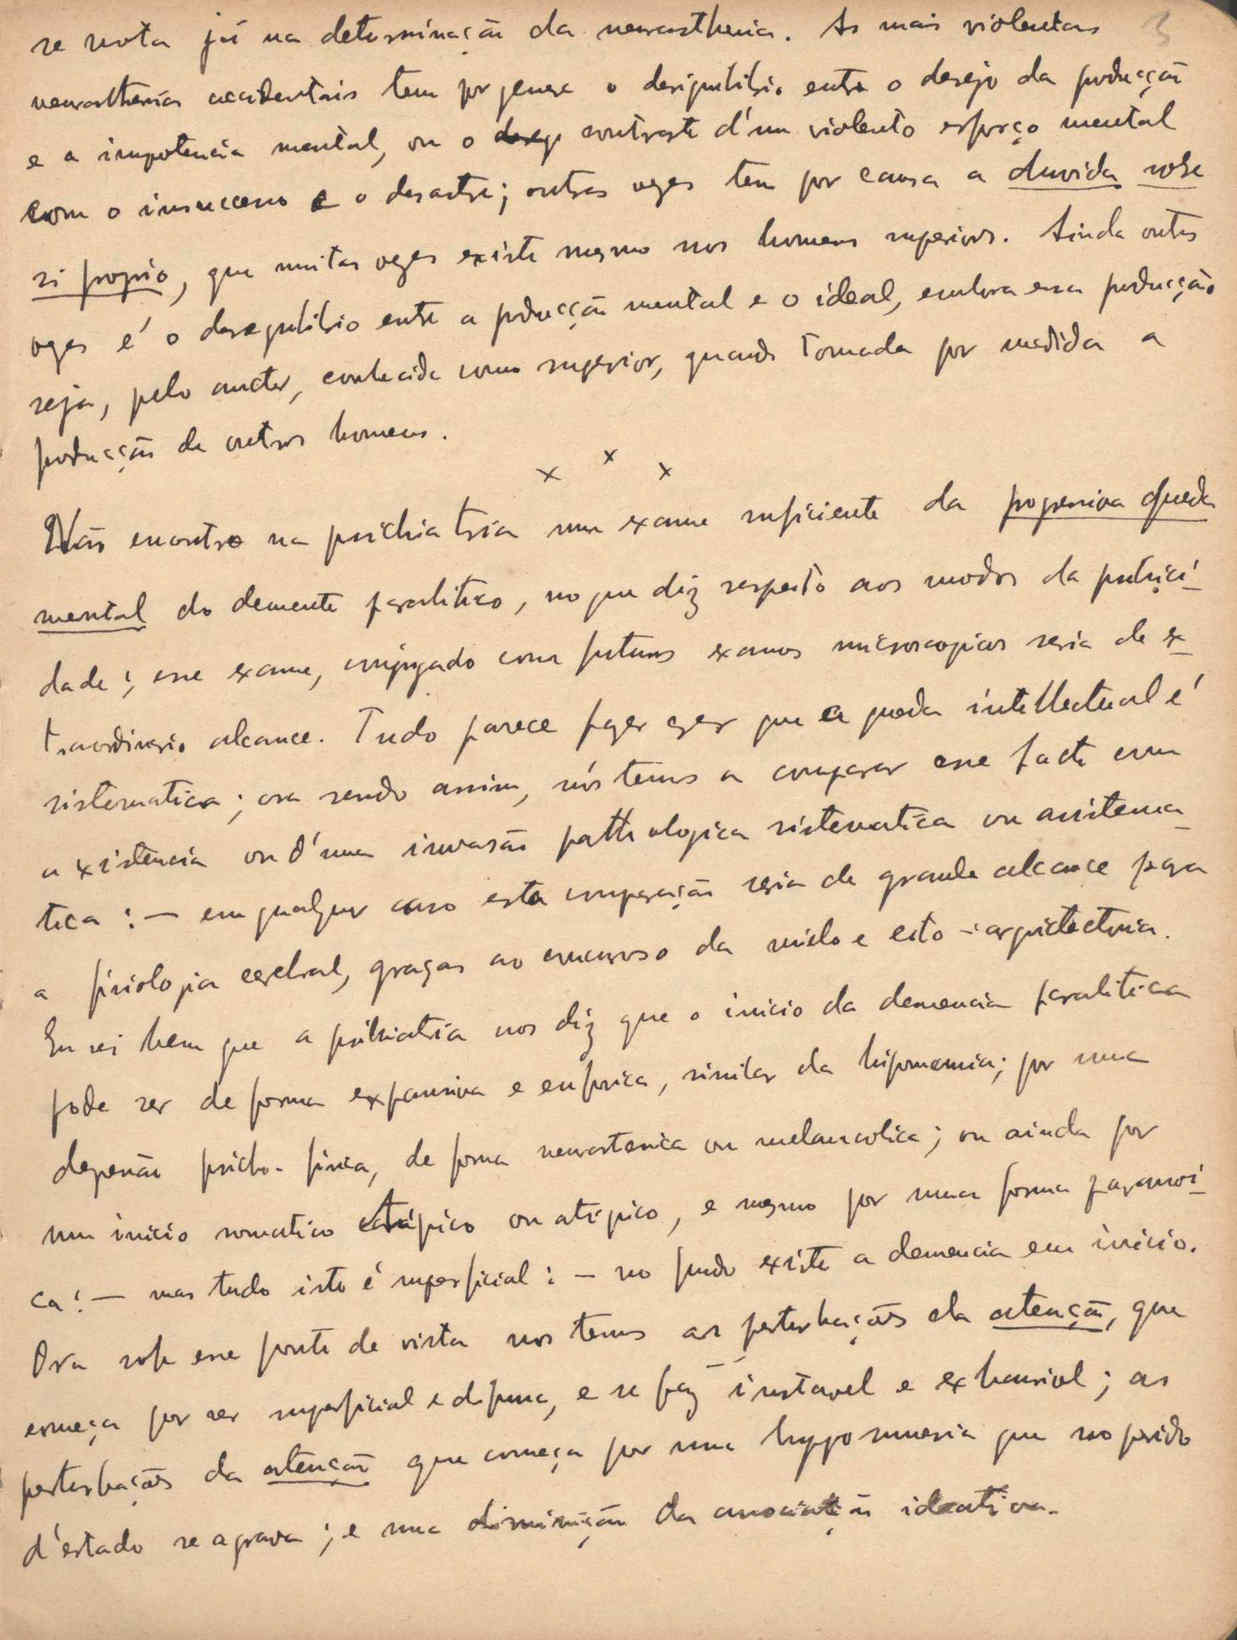 3
se nota já na determinação da neurasthenia. As mais violentas
neurasthenias accidentais tem por genese o desiquilibrio entre o desejo da producção
e a impotencia mental, ou o contraste d'um violento esforço mental
com o insuccesso e o desastre; outras vezes tem por causa a duvida sobre
si proprio, que muitas vezes existe mesmo nos homens superiores. Ainda outras
vezes é o desequilibrio entre a producção mental e o ideal, embora essa producção
seja, pelo auctor, conhecida como superior, quando tomada por medida a
producção de outros homens.
x x x
Não encontro na psichiatria um exame suficiente da progressiva queda
mental do demente paralitico, no que diz respeito aos modos da
dade; esse exame, conjugado com futuros exames microscopicos seria de ex-
traordinario alcance. Tudo parece fazer crer que a queda intellectual é
sistematica; ora sendo assim, nós temos a comparar esse facto com
a existencia ou d'uma invasão pathologica sistematica ou assistema-
tica: — em qualquer caso esta comparação seria de grande alcance para
a fisiologia cerebral, graças ao concurso da mielo e cito-arquitectonia.
Eu sei bem que a psihiatria nos diz que o inicio da demencia paralitica
pode ser de forma expansiva e euforica, similar da hipomania; por uma
depressão psicho-fisica, de forma neurastenica ou melancolica; ou ainda por
um inicio somatico tipico ou atipico, e mesmo por uma forma paranoi-
ca: — mas tudo isto é superficial: — no fundo existe a demencia em inicio.
Ora sob esse ponto de vista nos temos as perturbações da atenção, que
começa por ser superficial e difusa, e se faz instavel e exhaurivel; as
perturbações da atenção que começa por uma hypomnesia que no periodo
d'estado se agrava; e uma diminuição da associação ideativa.